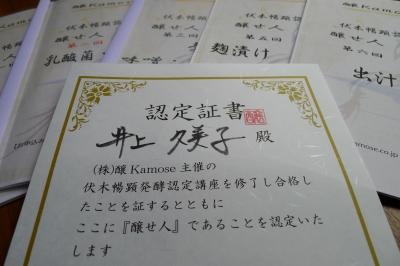 伏木暢顕
醸せ人
第二回
乳酸菌・
伏木暢顕
醸せ人
第三回
味噌・
伏木暢顕
醸せ人
第五回
麹漬け
醸Kamos
伏木暢顕
醸せ人
第六回
出汁
mose.co.jp
認定証書
井上 久美子 殿
(株)醸Kamose主催の
伏木暢顕発酵認定講座を修了し合格し
たことを証するとともに
ここに『醸せ人』であることを認定いた
します